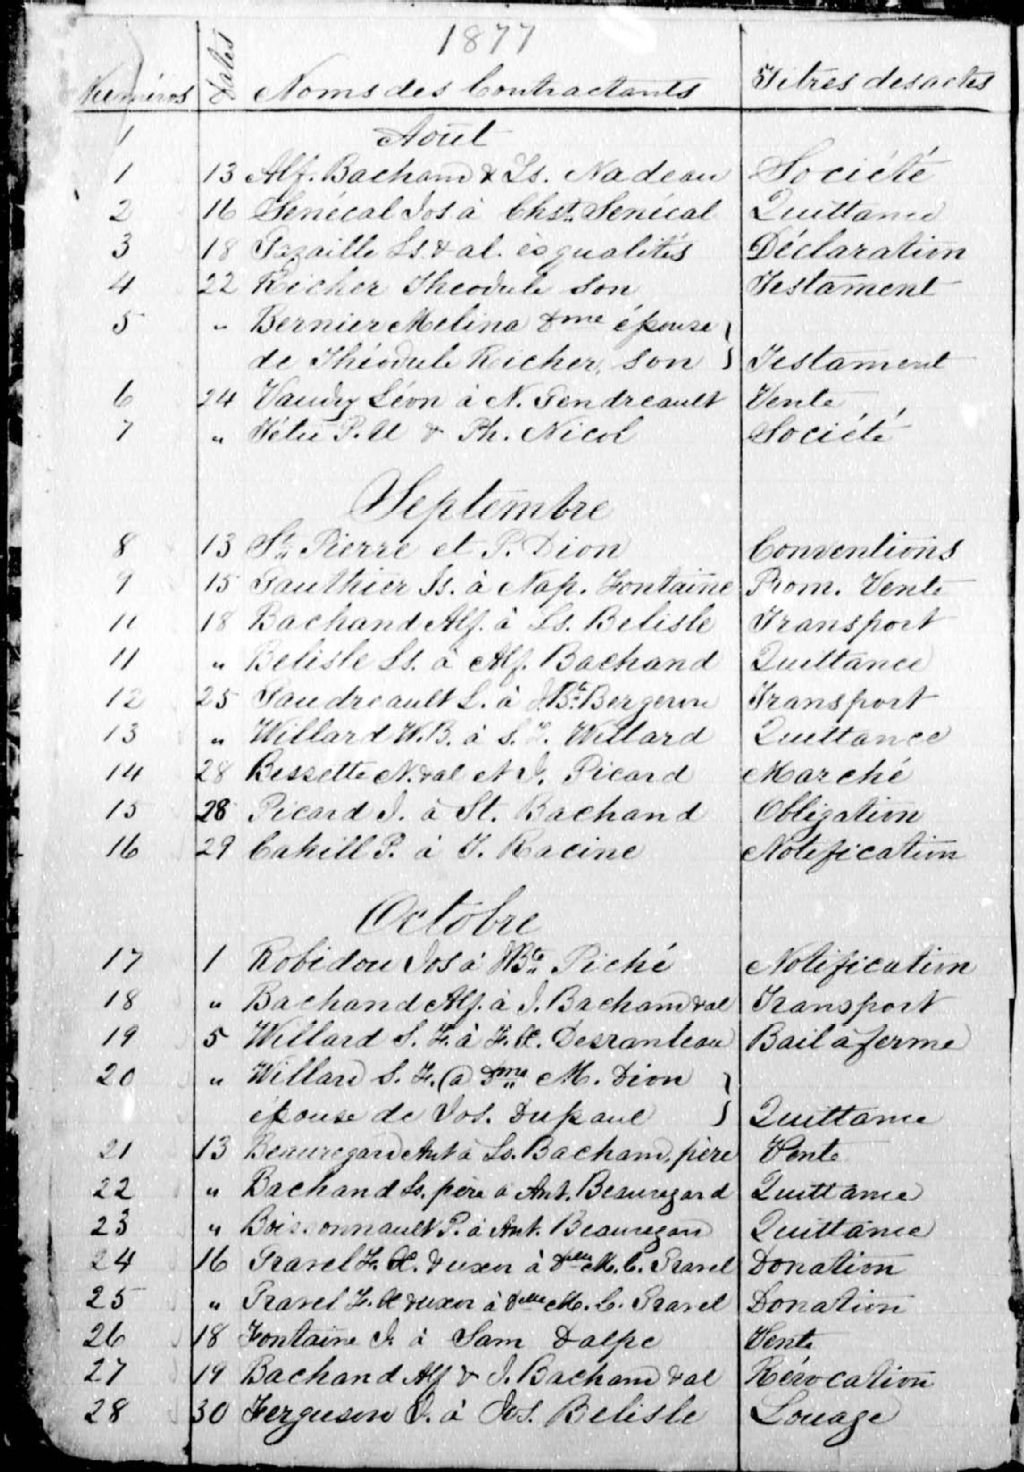 1877
Numéros Dates Noms des Contractants Titres des actes
1 Août
1 13 Alf. Bachand & Ls. Nadeau Société
2 16 Senécal Jos à Chst. Senécal Quittance
3 18 Gazaille Ls. & al. ès qualités Déclaration
4 22 Richer Theodule son Testament
5 " Bernier Melina Dme épouse
de Théodule Richer, son Testament
6 24 Vaudry Léon à N. Gendreault Vente
7 " Tétu P. & Ph. Nicol Société
Septembre
8 13 St. Pierre et P. Dion Conventions
9 15 Gauthier Is. à Nap. Fontaine Prom. Vente
10 18 Bachand Alf. à Ls. Belisle Transport
11 " Belisle Ls. à Alf. Bachand Quittance
12 25 Gaudreault L. à J.Bte Bergeron Transport
13 " Willard W.B. à S. F. Willard Quittance
14 28 Bessette N. & al et J. Picard Marché
15 28 Picard J. à St. Bachand Obligation
16 29 Cahill P. à T. Racine Notification
Octobre
17 1 Robidou Jos à JBte Piché Notification
18 " Bachand Alf. à J. Bachand & al Transport
19 5 Willard S. F. à F. X. Desranleau Bail à ferme
20 " Willard S. F. à Dme M. Dion
épouse de Jos. Dupaul Quittance
21 13 Beauregard Ant à Ls. Bachand, père Vente
22 " Bachand Ls. père à Ant. Beauregard Quittance
23 " Boissonnault P. à Ant. Beauregard Quittance
24 16 Gravel F. X. & uxor à Delle M. C. Gravel Donation
25 " Gravel F. X & uxor à Delle M. C. Gravel Donation
26 18 Fontaine J. à Sam Dalpé Vente
27 19 Bachand Alf & J. Bachand & al Révocation
28 30 Ferguson J. à Jos. Belisle Louage